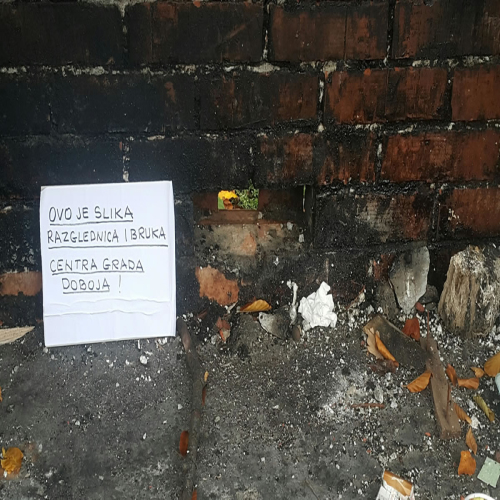 OVO JE SLIKA
RAZGLEDNICA I BRUKA
CENTRA GRADA
DOBOJA !